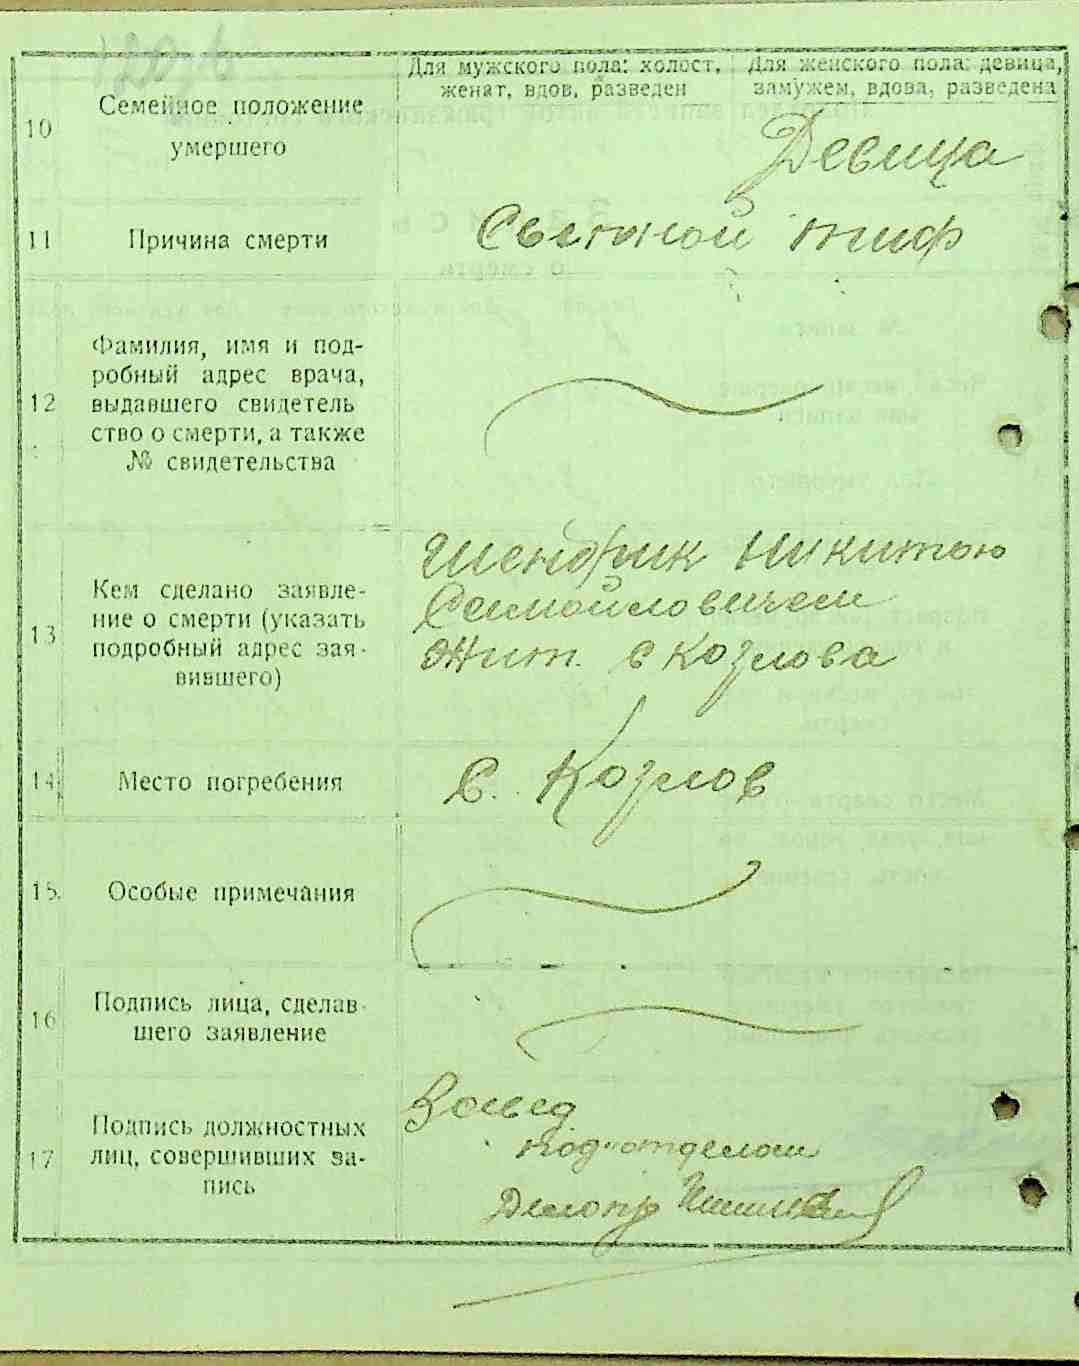 Для мужского пола: холост, женат, вдов, разведен
Для женского пола: девица, замужем, вдова, разведена
10
Семейное положение
умершего
Девица
11
Причина смерти
Сыпной тиф
12
Фамилия, имя и под-
робный адрес врача,
выдавшего свидетель
ство о смерти, а также
№ свидетельства
13
Кем сделано заявле-
ние о смерти (указать
подробный адрес зая-
вившего)
Шендрик Никитою
Самойловичем
Жит. с Козлова
14
Место погребения
С. Козлов
15.
Особые примечания
16
Подпись лица, сделав-
шего заявление
17
Подпись должностных
лиц, совершивших за-
пись
Завед
подотделом
Делопр